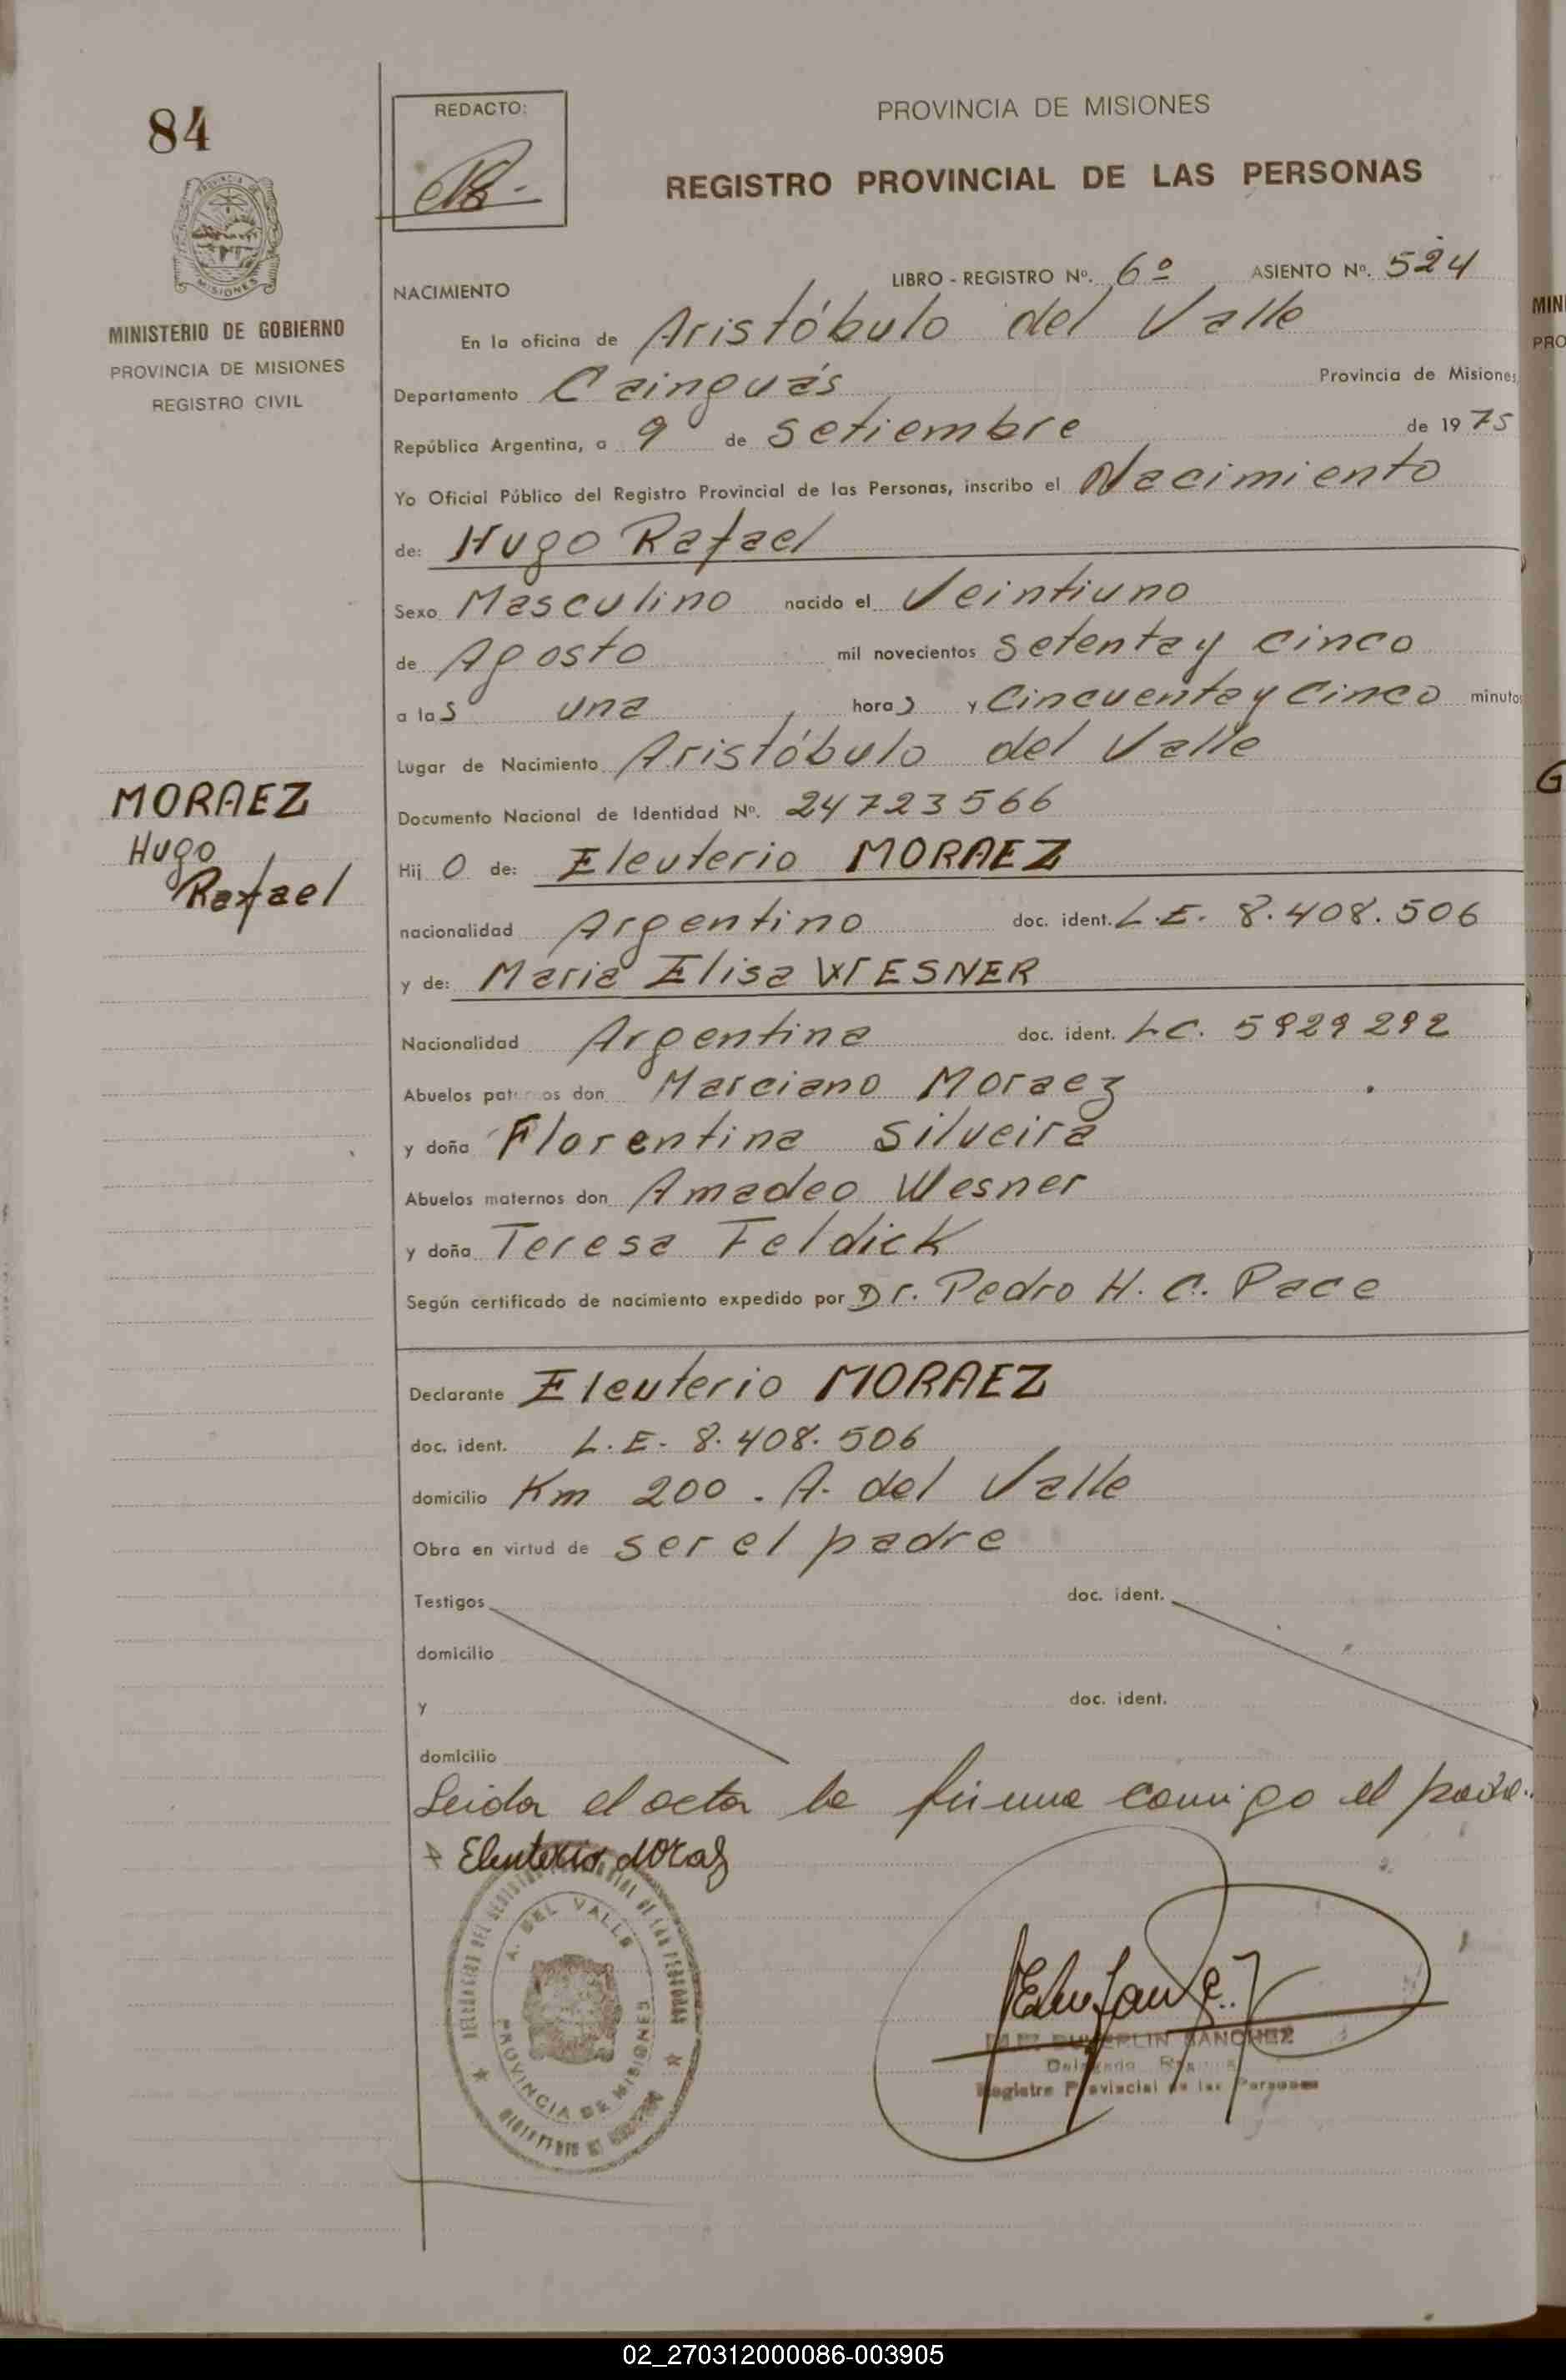 84
REDACTO:
PROVINCIA DE MISIONES
REGISTRO PROVINCIAL DE LAS PERSONAS
MINISTERIO DE GOBIERNO
PROVINCIA DE MISIONES
REGISTRO CIVIL
LIBRO - REGISTRO Nº. 6º ASIENTO Nº. 524
NACIMIENTO
En la oficina de Aristóbulo del Valle
Departamento Cainguás Provincia de Misiones
República Argentina, a 9 de Setiembre de 1975
Yo Oficial Público del Registro Provincial de las Personas, inscribo el Nacimiento
de: Hugo Rafael
Sexo Masculino nacido el Veintiuno
de Agosto mil novecientos Setenta y cinco
a las una hora) y Cincuenta y Cinco minutos
Lugar de Nacimiento Aristóbulo del Valle
MORAEZ
Hugo
Rafael
Documento Nacional de Identidad Nº. 24723566
Hij O de: Eleuterio MORAEZ
nacionalidad Argentino doc. ident. L.E. 8.408.506
y de: Maria Elisa WESNER
Nacionalidad Argentina doc. ident. L.C. 5929292
Abuelos paternos don Marciano Moraez
y doña Florentina Silveira
Abuelos maternos don Amadeo Wesner
y doña Teresa Feldick
Según certificado de nacimiento expedido por Dr. Pedro H. C. Pace
Declarante Eleuterio MORAEZ
doc. ident. L.E. 8.408.506
domicilio Km 200 . A. del Valle
Obra en virtud de ser el padre
Testigos doc. ident.
domicilio
y doc. ident.
domicilio
Leida el acta la firma comigo el padre.
Eleuterio Moraz
A. DEL VALLE
PROVINCIA DE MISIONES
SANCHEZ
Registro Provincial de las Personas
02_270312000086-003905